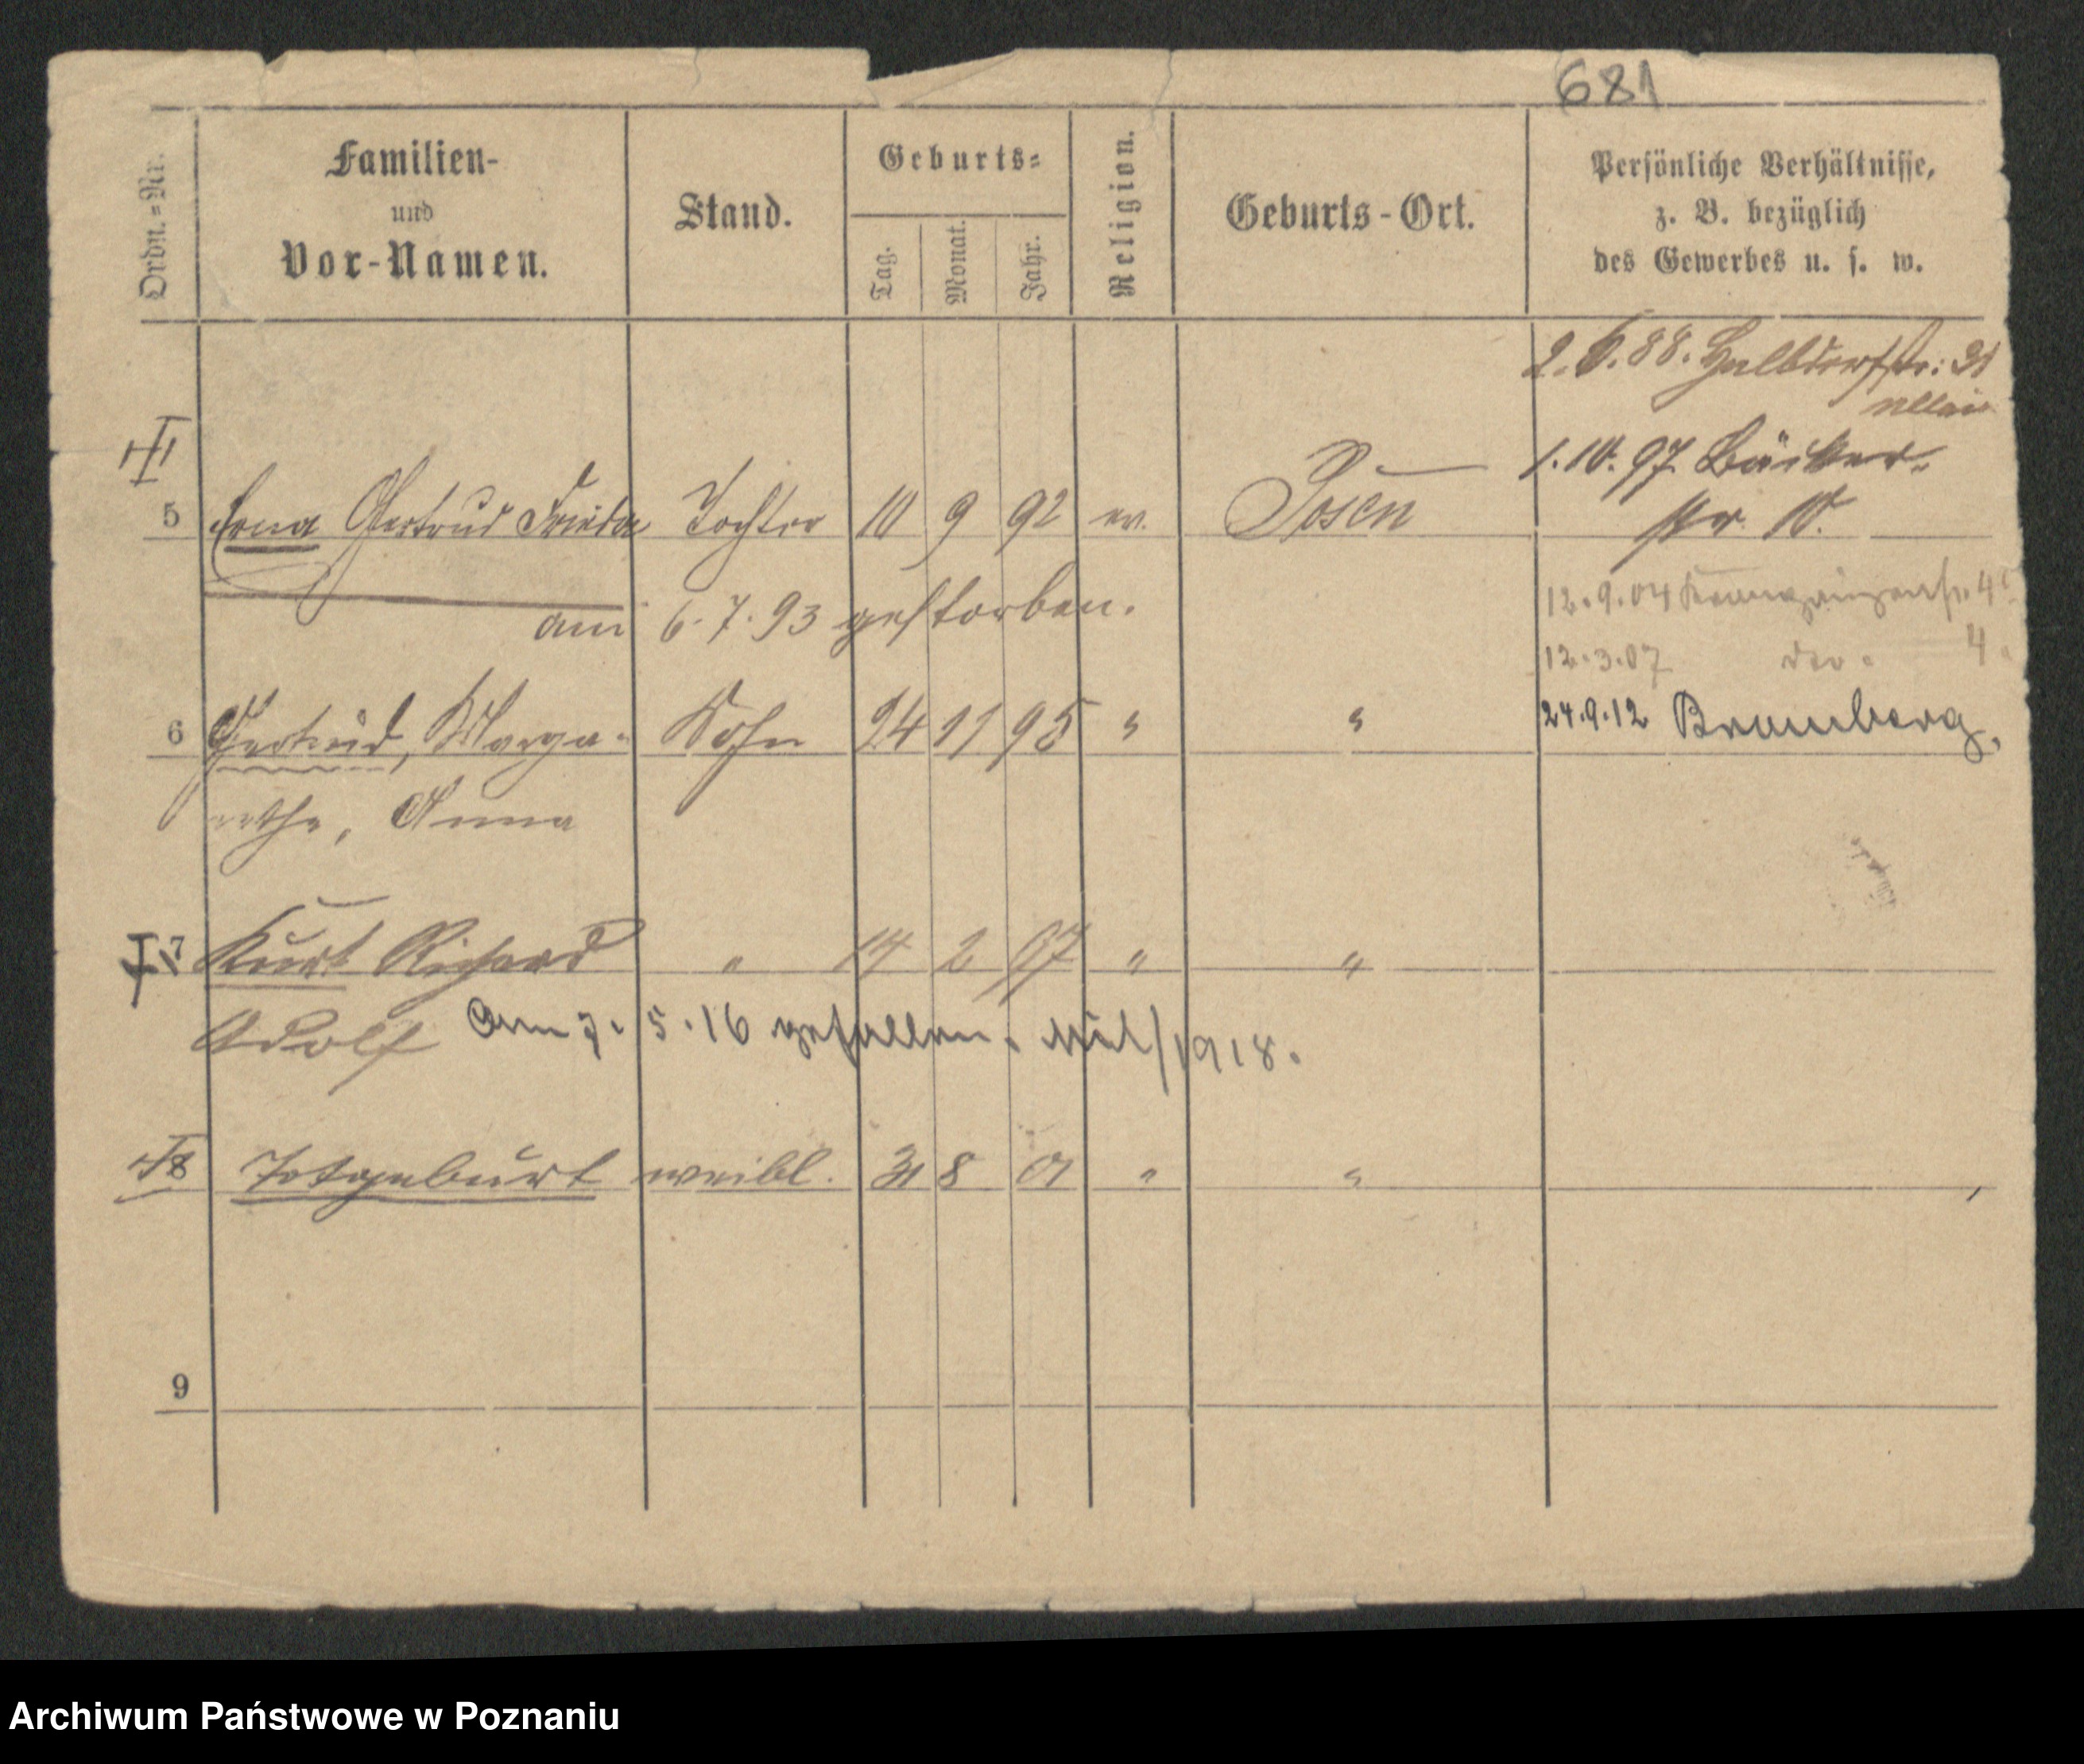 681
Ordn.=Nr.
Familien-
und
Vor-Namen.
Stand.
Geburts=
Tag.
Monat.
Jahr.
Religion.
Geburts-Ort.
Persönliche Verhältnisse,
z. B. bezüglich
des Gewerbes u. s. w.
2.6.88. Halbdorfstr: 31
allein
1.10.97. Bäcker-
str. 10.
5 Erna Gertrud Frieda Tochter 10 9 92 ev. Posen
am 6.7.93 gestorben.
12.9.04
12.3.07 do. 4
6 Gertrud, Marga- 24 11 95 " " 24.9.12 Bromberg.
rethe, Anna
7 Kurt Richard " 14 2 97 " "
Adolf Am 7.5.16 gefallen. Mil/1918.
8 Totgeburt weibl. 31 8 01 " "
9
Archiwum Państwowe w Poznaniu